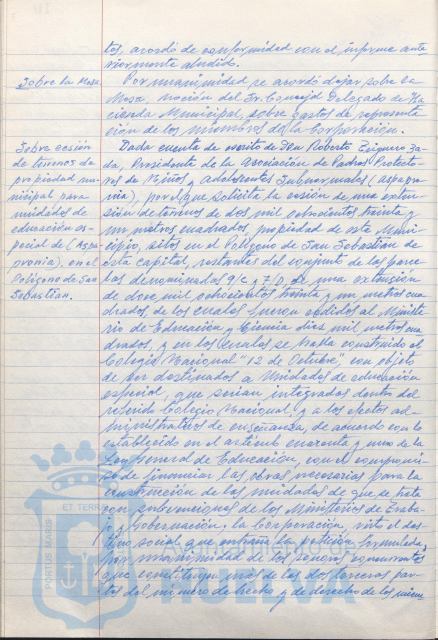 tos, acordó de conformidad con el informe ante
riormente aludido.
Sobre la Mesa.
Por unanimidad se acordó dejar sobre la
Mesa, moción del Sr. Concejal Delegado de Ha
cienda Municipal, sobre gastos de representa
ción de los miembros de la Corporación.
Sobre cesión
de terrenos de
propiedad mu-
nicipal para
unidades de
educación es-
pecial de (Aspa
pronia), en el
Polígono de San
Sebastián.
Dada cuenta de escrito de Don Roberto
da, Presidente de la Asociación de Padres Protecto
res de Niños y Adolescentes Subnormales (aspapro
nia), por el que solicita la cesión de una exten
sión de terrenos de dos mil ochocientos treinta y
un metros cuadrados, propiedad de este Muni
cipio, sitos en el Polígono de San Sebastián de
esta capital, restantes del conjunto de las parce
las denominadas 9/c y 7 D de una extensión
de doce mil ochocientos treinta y un metros cua
drados, de los cuales fueron cedidos al Ministe
rio de Educación y Ciencia diez mil metros cua
drados, y en los cuales se ha construido el
Colegio Nacional "12 de Octubre", con objeto
de ser destinados a Unidades de educación
especial, que serían integrados dentro del
referido Colegio Nacional, y a los efectos ad
ministrativos de enseñanza, de acuerdo con lo
establecido en el artículo cuarenta y uno de la
Ley General de Educación, con el compromi
so de financiar las obras necesarias para la
construcción de las unidades de que se trata
con subvenciones de los Ministerios de Traba
jo y Gobernación, la Corporación, visto el des
tino social que entraña la petición formulada,
por unanimidad de los señores concurrentes
que constituyen más de las dos terceras par
tes del número de hecho y de derecho de los miem
PORTUS MARIS ET TERRAE
Ayuntamiento de
HUELVA